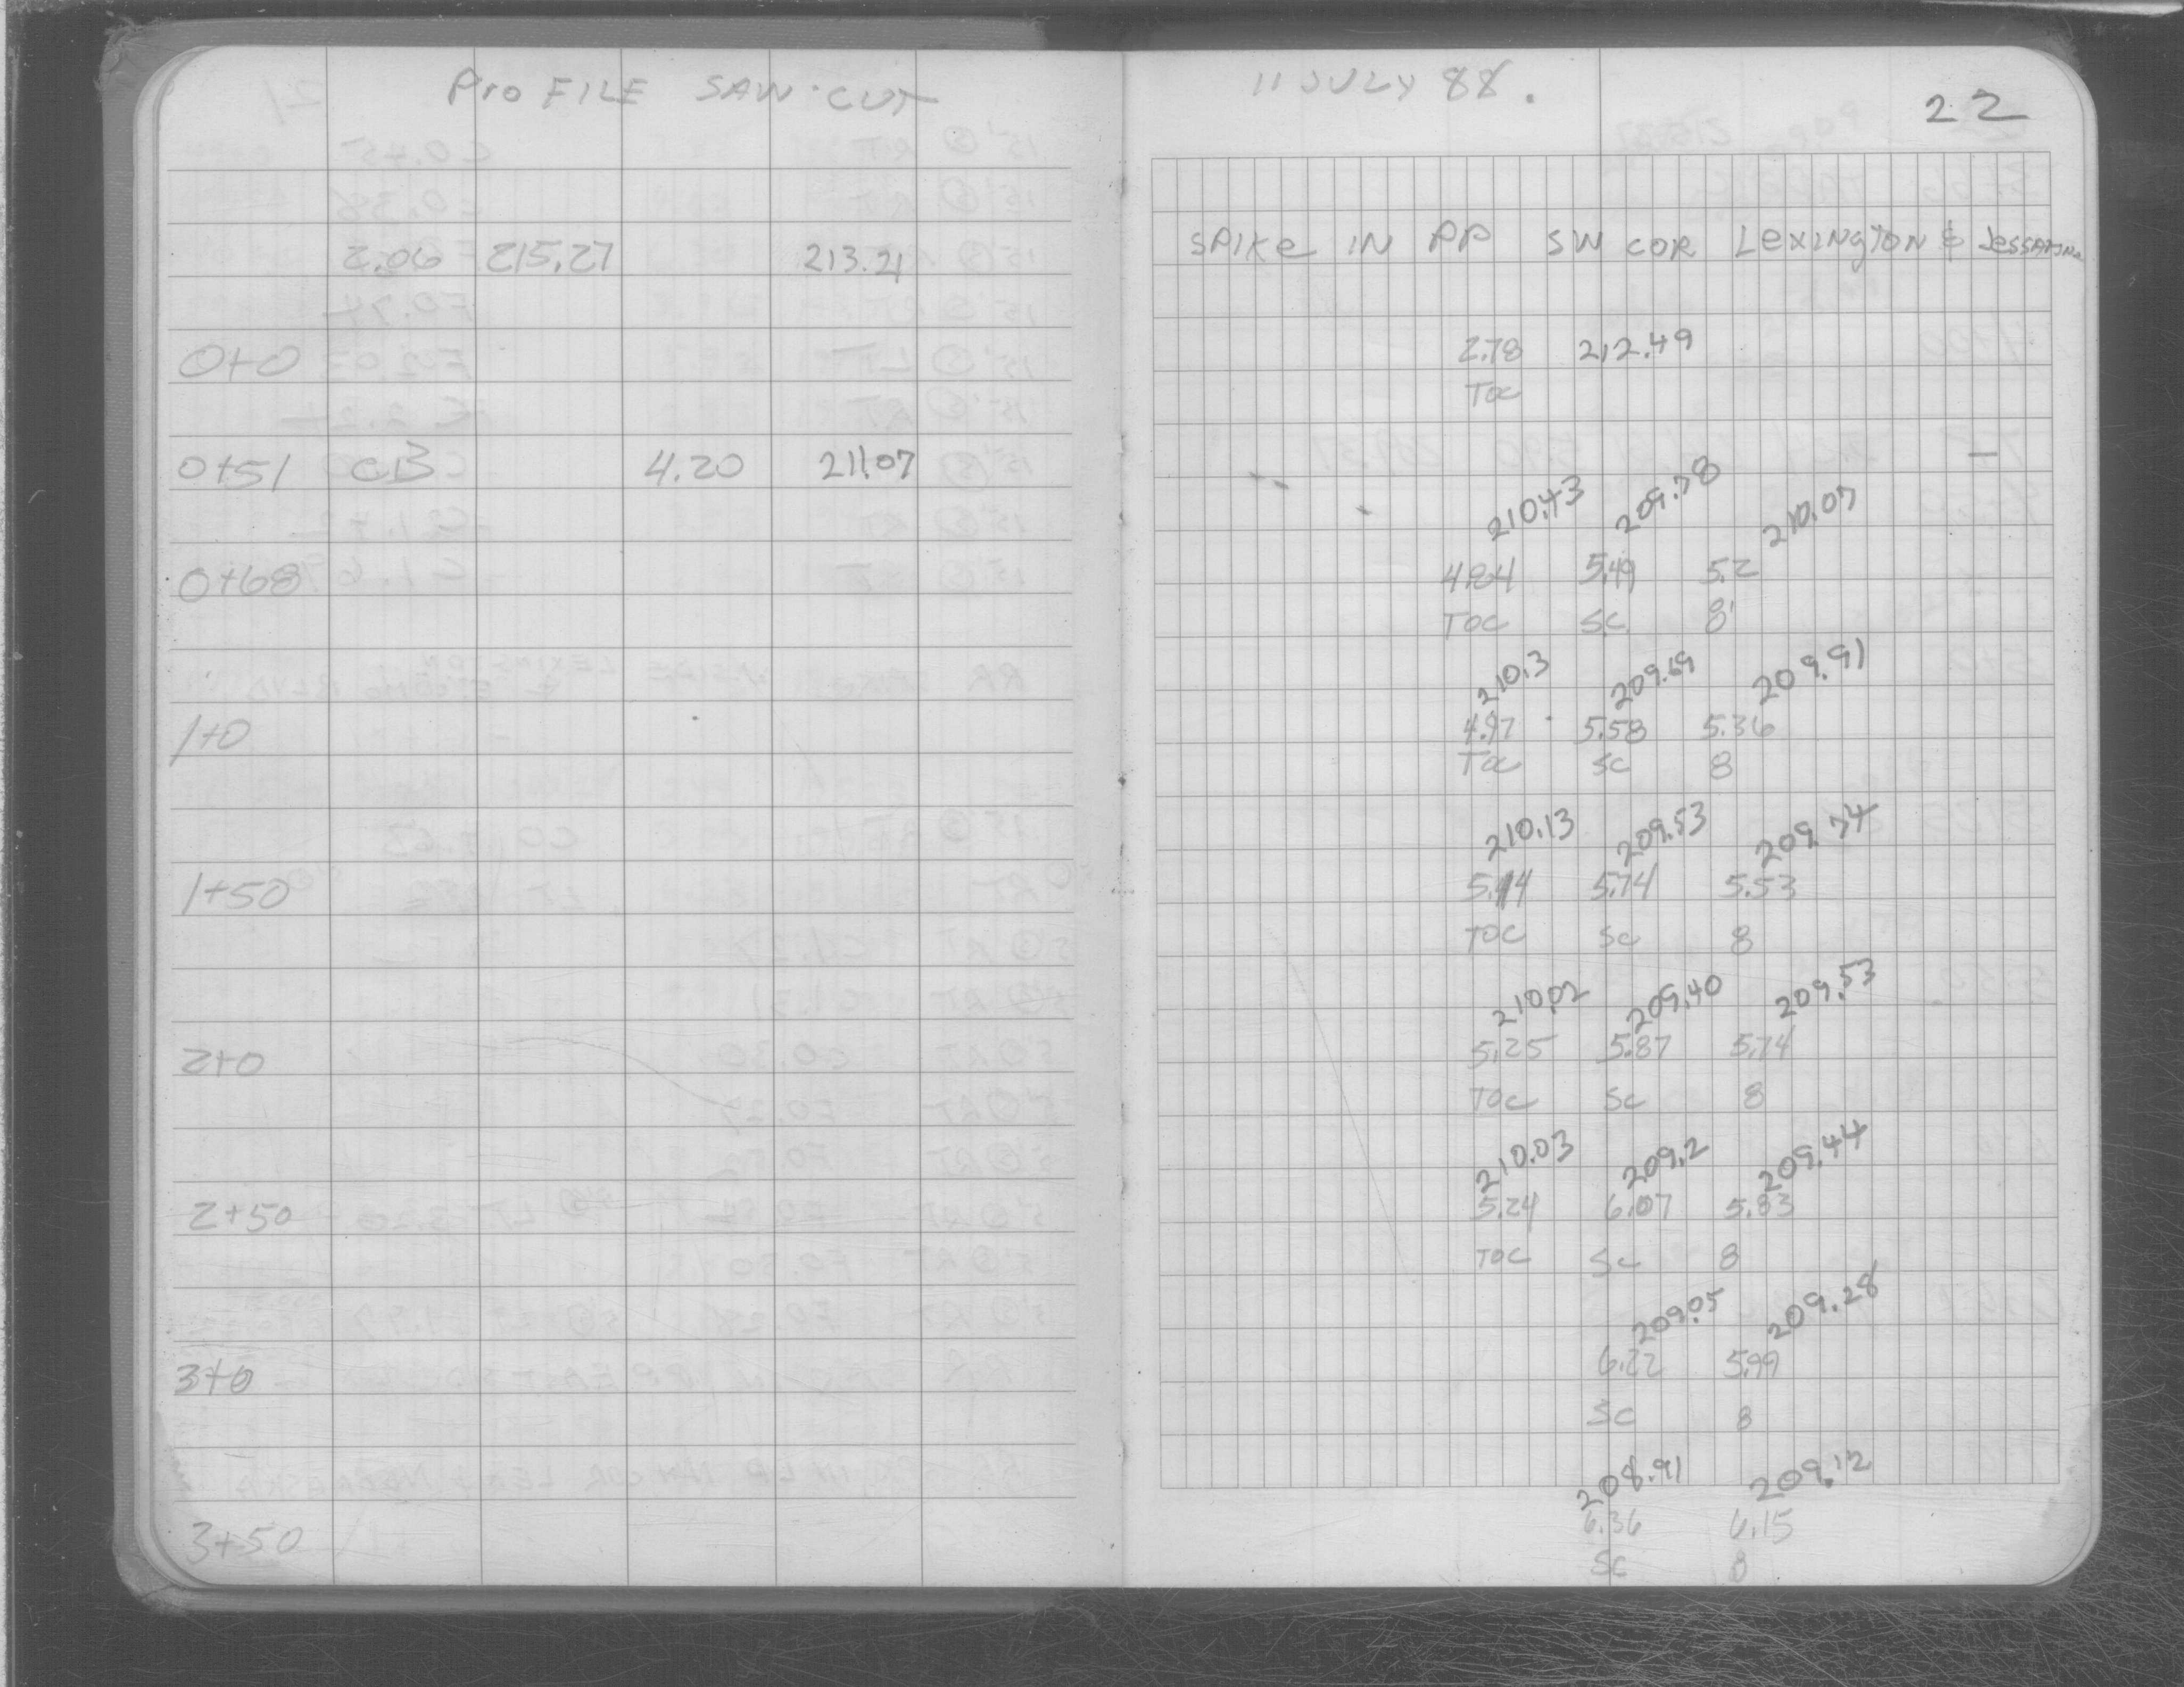 ProFILE SAW-CUT
11 JULY 88.
22
2.06 215.27 213.21
SPIKE IN PP SW COR LEXINGTON &
0+0 2.78 212.49
TOC
0+51 CB 4.20 211.07
210.43 209.78 210.07
0+68 4.84 5.49 5.2
TOC SC 8'
210.3 209.69 209.91
1+0 4.97 5.58 5.36
TOC SC 8
210.13 209.53 209.74
1+50 5.14 5.74 5.53
TOC SC 8
210.02 209.40 209.53
2+0 5.25 5.87 5.74
TOC SC 8
210.03 209.2 209.44
2+50 5.24 6.07 5.83
TOC SC 8
209.05 209.28
3+0 6.22 5.99
SC 8
208.91 209.12
3+50 6.36 6.15
SC 8